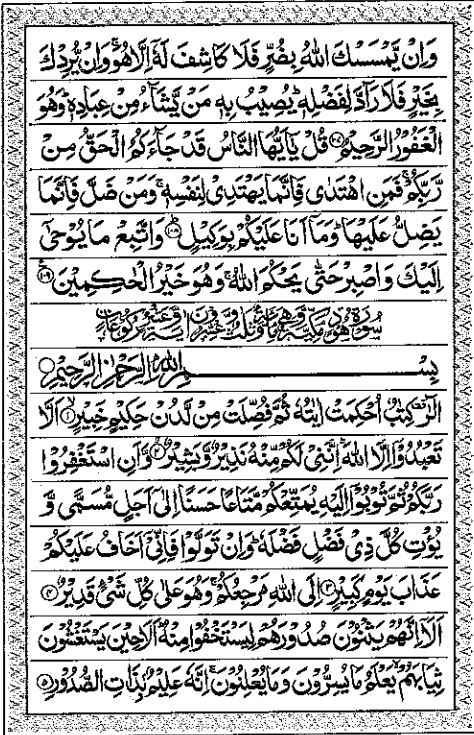 وَاِنْ يَّمْسَسْكَ اللّٰهُ بِضُرٍّ فَلَا كَاشِفَ لَهٗۤ اِلَّا هُوَ ۚ وَاِنْ يُّرِدْكَ
بِخَيْرٍ فَلَا رَآدَّ لِفَضْلِهٖ ؕ يُصِيْبُ بِهٖ مَنْ يَّشَآءُ مِنْ عِبَادِهٖ ؕ وَهُوَ
الْغَفُوْرُ الرَّحِيْمُ ﴿۱۰۷﴾ قُلْ يٰۤاَيُّهَا النَّاسُ قَدْ جَآءَكُمُ الْحَقُّ مِنْ
رَّبِّكُمْ ۚ فَمَنِ اهْتَدٰى فَاِنَّمَا يَهْتَدِيْ لِنَفْسِهٖ ۚ وَمَنْ ضَلَّ فَاِنَّمَا
يَضِلُّ عَلَيْهَا ؕ وَمَاۤ اَنَا عَلَيْكُمْ بِوَكِيْلٍ ﴿۱۰۸﴾ وَاتَّبِعْ مَا يُوْحٰۤى
اِلَيْكَ وَاصْبِرْ حَتّٰى يَحْكُمَ اللّٰهُ ۚ وَهُوَ خَيْرُ الْحٰكِمِيْنَ ﴿۱۰۹﴾
سورة هود مكية وهى مائة وثلث وعشرون اية وعشر ركوعات
بِسْمِ اللّٰهِ الرَّحْمٰنِ الرَّحِيْمِ
الٓرٰ ۫ كِتٰبٌ اُحْكِمَتْ اٰيٰتُهٗ ثُمَّ فُصِّلَتْ مِنْ لَّدُنْ حَكِيْمٍ خَبِيْرٍ ﴿۱﴾ اَلَّا
تَعْبُدُوْۤا اِلَّا اللّٰهَ ؕ اِنَّنِيْ لَكُمْ مِّنْهُ نَذِيْرٌ وَّبَشِيْرٌ ﴿۲﴾ وَّاَنِ اسْتَغْفِرُوْا
رَبَّكُمْ ثُمَّ تُوْبُوْۤا اِلَيْهِ يُمَتِّعْكُمْ مَّتَاعًا حَسَنًا اِلٰۤى اَجَلٍ مُّسَمًّى وَّ
يُؤْتِ كُلَّ ذِيْ فَضْلٍ فَضْلَهٗ ؕ وَاِنْ تَوَلَّوْا فَاِنِّيْۤ اَخَافُ عَلَيْكُمْ
عَذَابَ يَوْمٍ كَبِيْرٍ ﴿۳﴾ اِلَى اللّٰهِ مَرْجِعُكُمْ ۚ وَهُوَ عَلٰى كُلِّ شَيْءٍ قَدِيْرٌ ﴿۴﴾
اَلَاۤ اِنَّهُمْ يَثْنُوْنَ صُدُوْرَهُمْ لِيَسْتَخْفُوْا مِنْهُ ؕ اَلَا حِيْنَ يَسْتَغْشُوْنَ
ثِيَابَهُمْ ۙ يَعْلَمُ مَا يُسِرُّوْنَ وَمَا يُعْلِنُوْنَ ۚ اِنَّهٗ عَلِيْمٌۢ بِذَاتِ الصُّدُوْرِ ﴿۵﴾